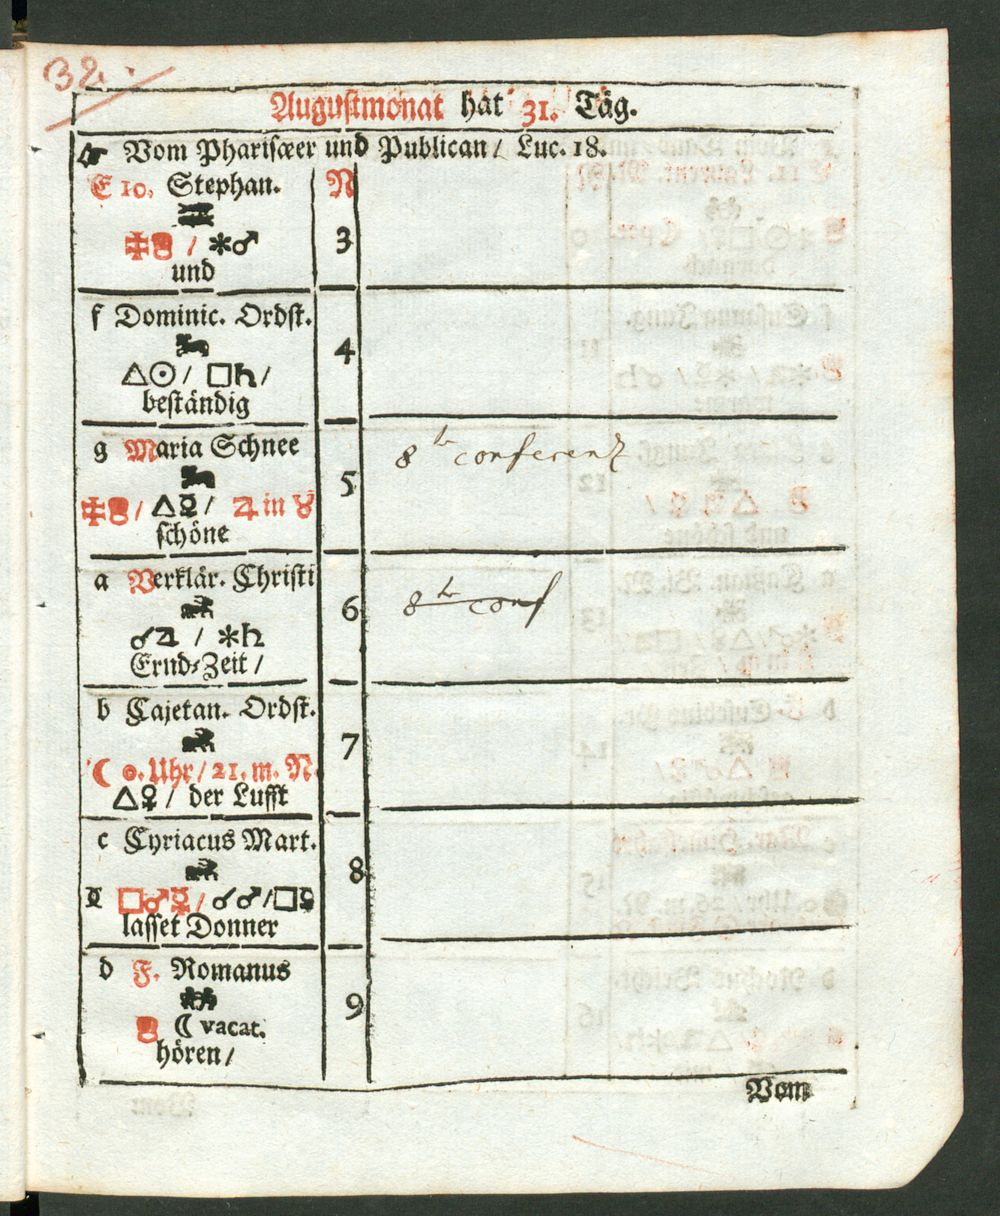 32.
Augustmonat hat 31. Täg.
☞ Vom Pharisæer und Publican / Luc. 18.
E 10. Stephan. N
/ ✶♂ 3
und
f Dominic. Ordst.
△☉ / □♄ / 4
beständig
g Maria Schnee
8 te conferenz
/ △☿ / ♃ in ♉ 5
schöne
a Verklär. Christi
8 te conf
☌♃ / ✶♄ 6
Ernd-Zeit /
b Cajetan. Ordst.
☾ 0. Uhr / 21. m. N. 7
△♀ / der Lufft
c Cyriacus Mart.
□♂☿ / ☌♂ / □☿ 8
lasset Donner
d F. Romanus
☾ vacat. 9
hören /
Vom